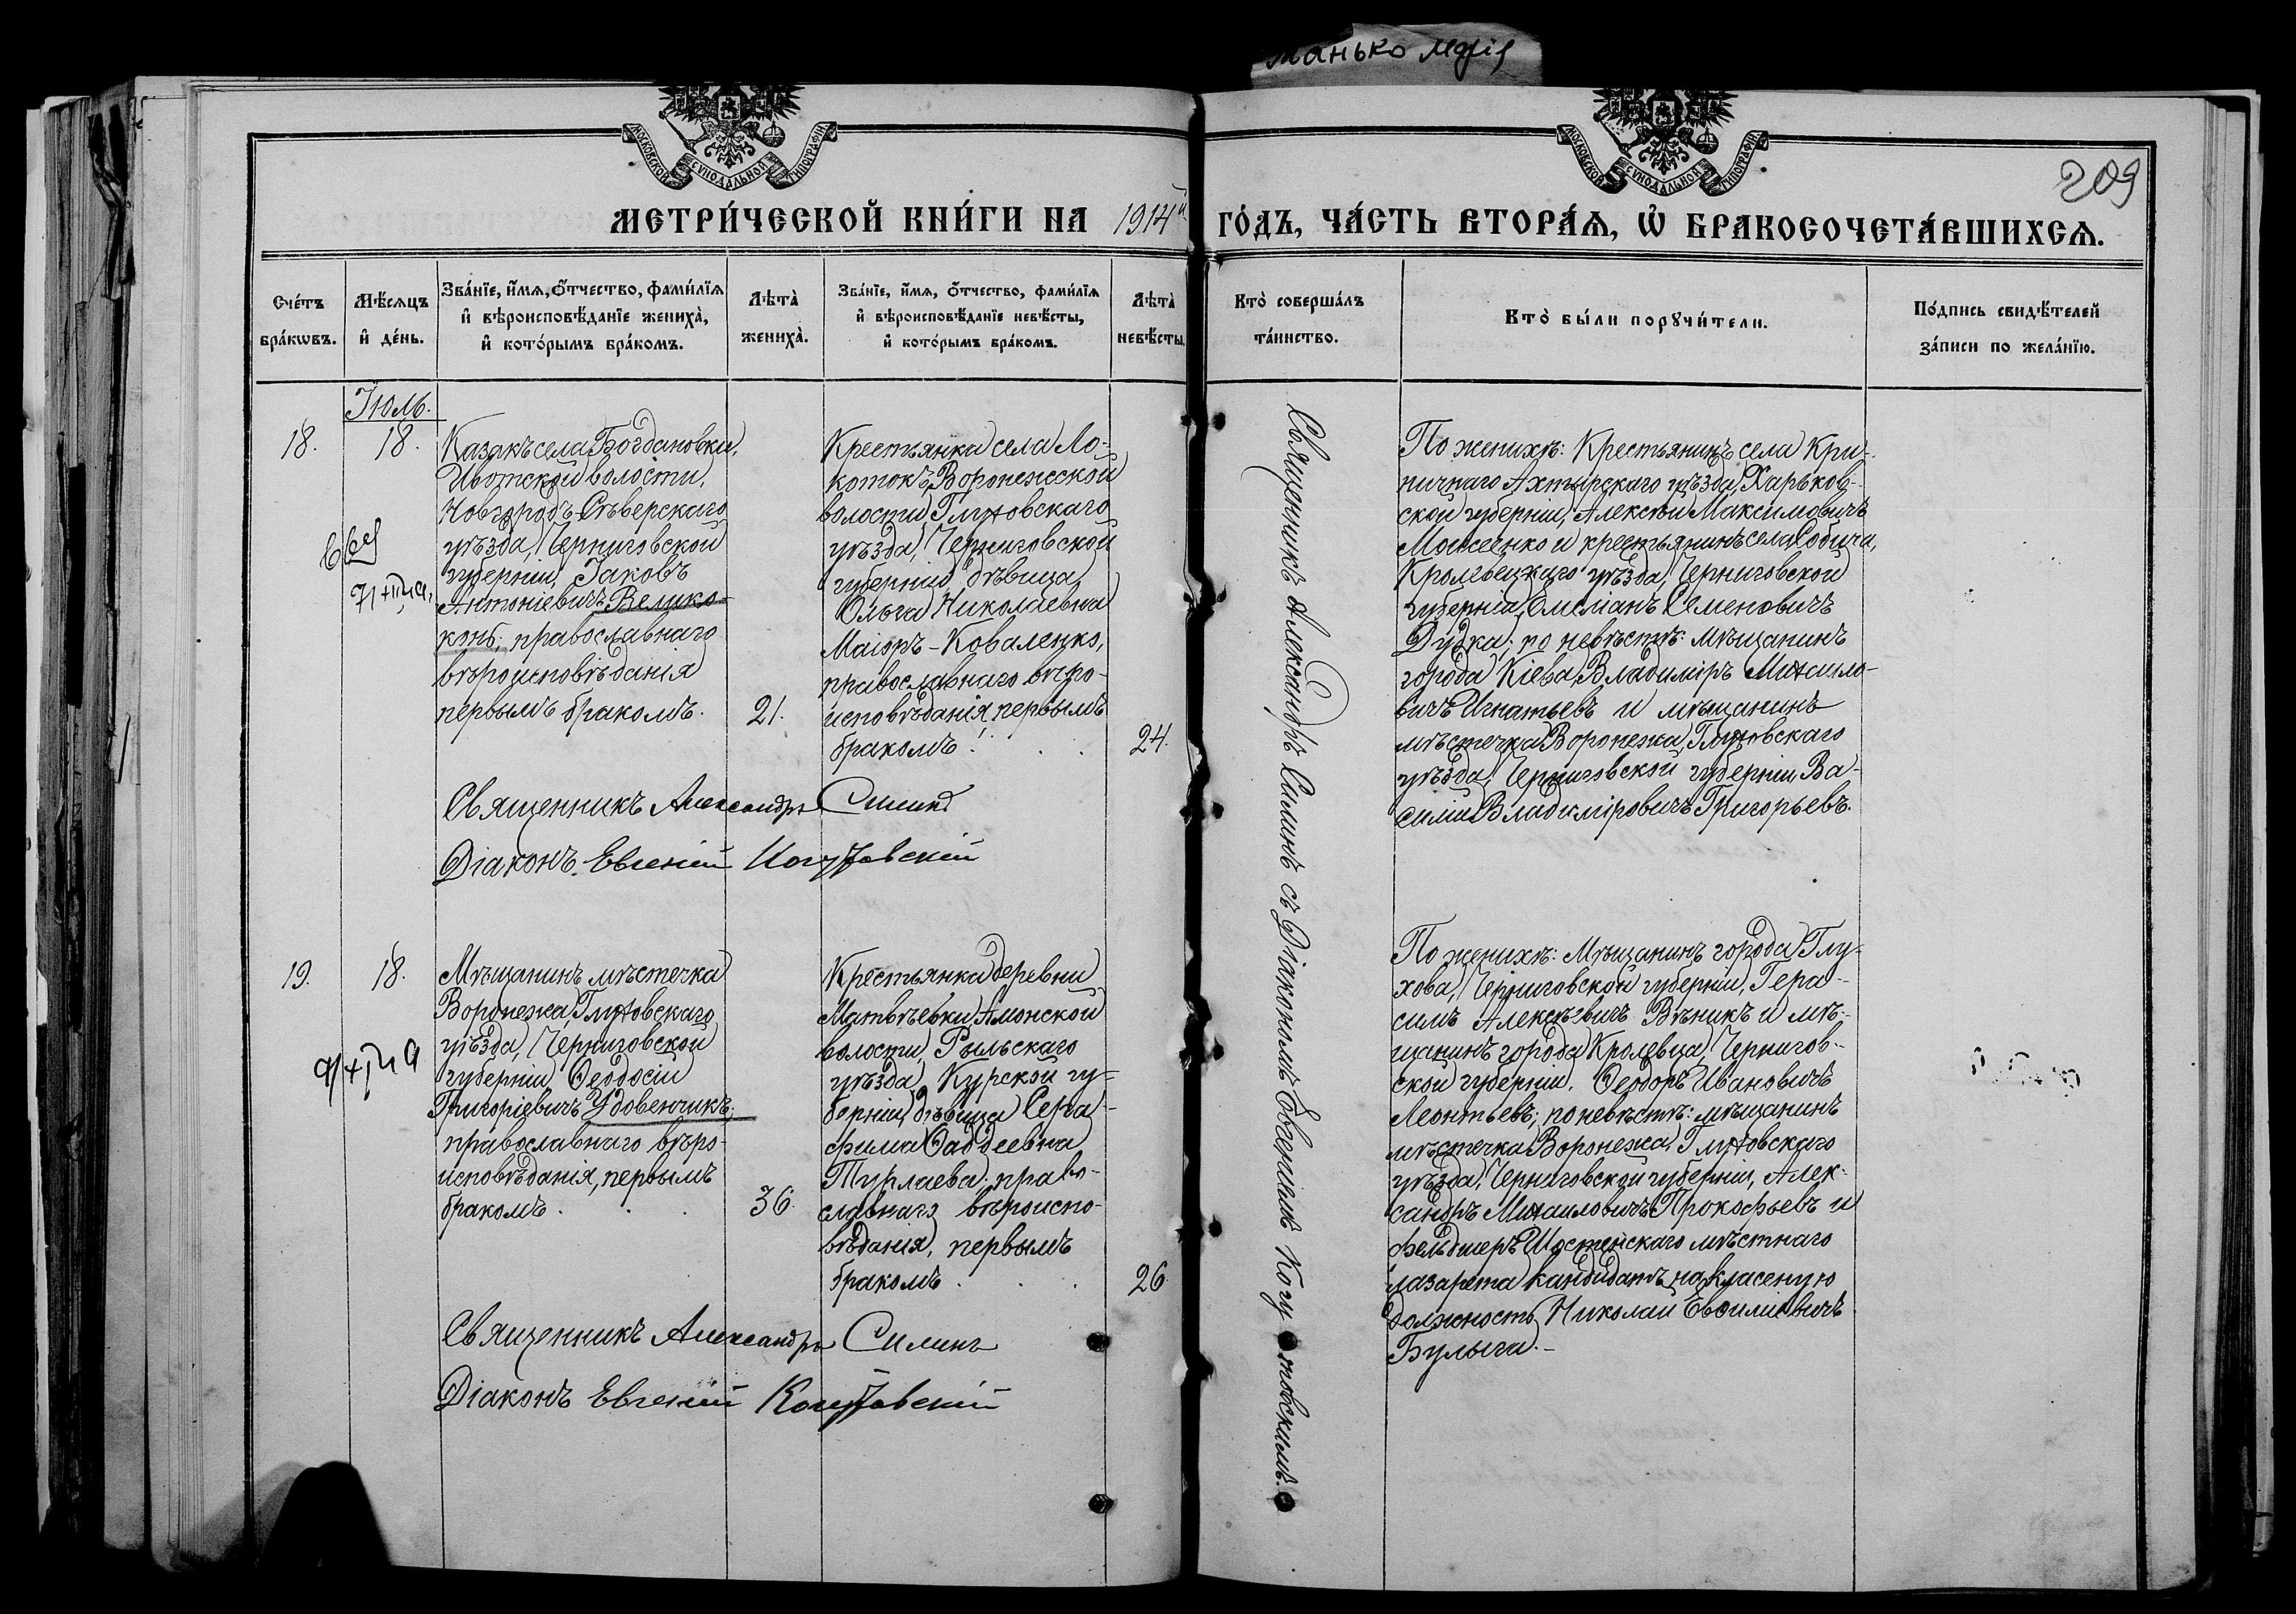 Манько
МОСКОВСКОЙ СѴНОДАЛЬНОЙ ТИПОГРАФІИ
МОСКОВСКОЙ СѴНОДАЛЬНОЙ ТИПОГРАФІИ
209
МЕТРИ́ЧЕСКОЙ КНИ́ГИ НА 1914й ГО́ДЪ, ЧА́СТЬ ВТОРА́Ѧ, Ѡ҆ БРАКОСОЧЕТА́ВШИХСѦ.
Сче́тъ
бра́кѡвъ.
Мѣ́сяцъ
и҆ де́нь.
Зва́нїе, и҆́мя, ѻ҆́тчество, фами́лїя
и҆ вѣроисповѣ́данїе жениха̀,
и҆ кото́рымъ бра́комъ.
Лѣта̀
жениха̀.
Зва́нїе, и҆́мя, ѻ҆́тчество, фами́лїя
и҆ вѣроисповѣ́данїе невѣ́сты,
и҆ кото́рымъ бра́комъ.
Лѣта̀
невѣ́сты.
Кто̀ соверша́лъ
та́инство.
Кто̀ бы́ли порꙋчи́тели.
По́дпись свидѣ́телей
за́писи по жела́нїю.
Іюль.
18.
18.
Казакъ села Богдановки,
Ивотской волости,
Новгородъ-Сѣверскаго
уѣзда, Черниговской
губерніи, Іаковъ
Антоніевичъ Велико-
конь; православнаго
вѣроисповѣданія
первымъ бракомъ.
21.
Крестьянка села Ло-
котокъ, Воронежской
волости, Глуховскаго
уѣзда, Черниговской
губерніи, дѣвица,
Ольга Николаевна
Маіоръ-Коваленко,
православнаго вѣро-
исповѣданія, первымъ
бракомъ.
24.
Священникъ Александръ Силинъ
Діаконъ Евгеній
Священникъ Александръ Силинъ съ Діакономъ Евгеніемъ
По женихѣ: Крестьянинъ села Кри-
ничнаго Ахтырскаго уѣзда, Харьков-
ской губерніи, Алексѣй Максимовичъ
Мошенко и крестьянинъ села Собича,
Кролевецкаго уѣзда, Черниговской
губерніи, Омеліанъ Семеновичъ
Дудка; по невѣстѣ: мѣщанинъ
города Кіева, Владиміръ Михаило-
вичъ Игнатьевъ и мѣщанинъ
мѣстечка Воронежа, Глуховскаго
уѣзда, Черниговской губерніи, Ва-
силій Владиміровичъ Григорьевъ.
19.
18.
Мѣщанинъ мѣстечка
Воронежа, Глуховскаго
уѣзда, Черниговской
губерніи Ѳеодосій
Григоріевичъ Удовенчикъ;
православнаго вѣро-
исповѣданія, первымъ
бракомъ.
36.
Крестьянка деревни
Матвѣевки, Амонской
волости, Рыльскаго
уѣзда, Курской гу-
берніи, дѣвица Сера-
фима Ѳаддеевна
Турлаева; право-
славнаго вѣроиспо-
вѣданія, первымъ
бракомъ.
26.
Священникъ Александръ Силинъ
Діаконъ Евгеній
По женихѣ: Мѣщанинъ города Глу-
хова, Черниговской губерніи, Гера-
симъ Алексѣевичъ Вѣникъ и мѣ-
щанинъ города Кролевца, Чернигов-
ской губерніи, Ѳеодоръ Ивановичъ
Леонтьевъ; по невѣстѣ: мѣщанинъ
мѣстечка Воронежа, Глуховскаго
уѣзда, Черниговской губерніи, Алек-
сандръ Михаиловичъ Прокофьевъ и
фельдшеръ Шостенскаго мѣстнаго
лазарета кандидатъ на класеную
должность Николай
Булыга.-